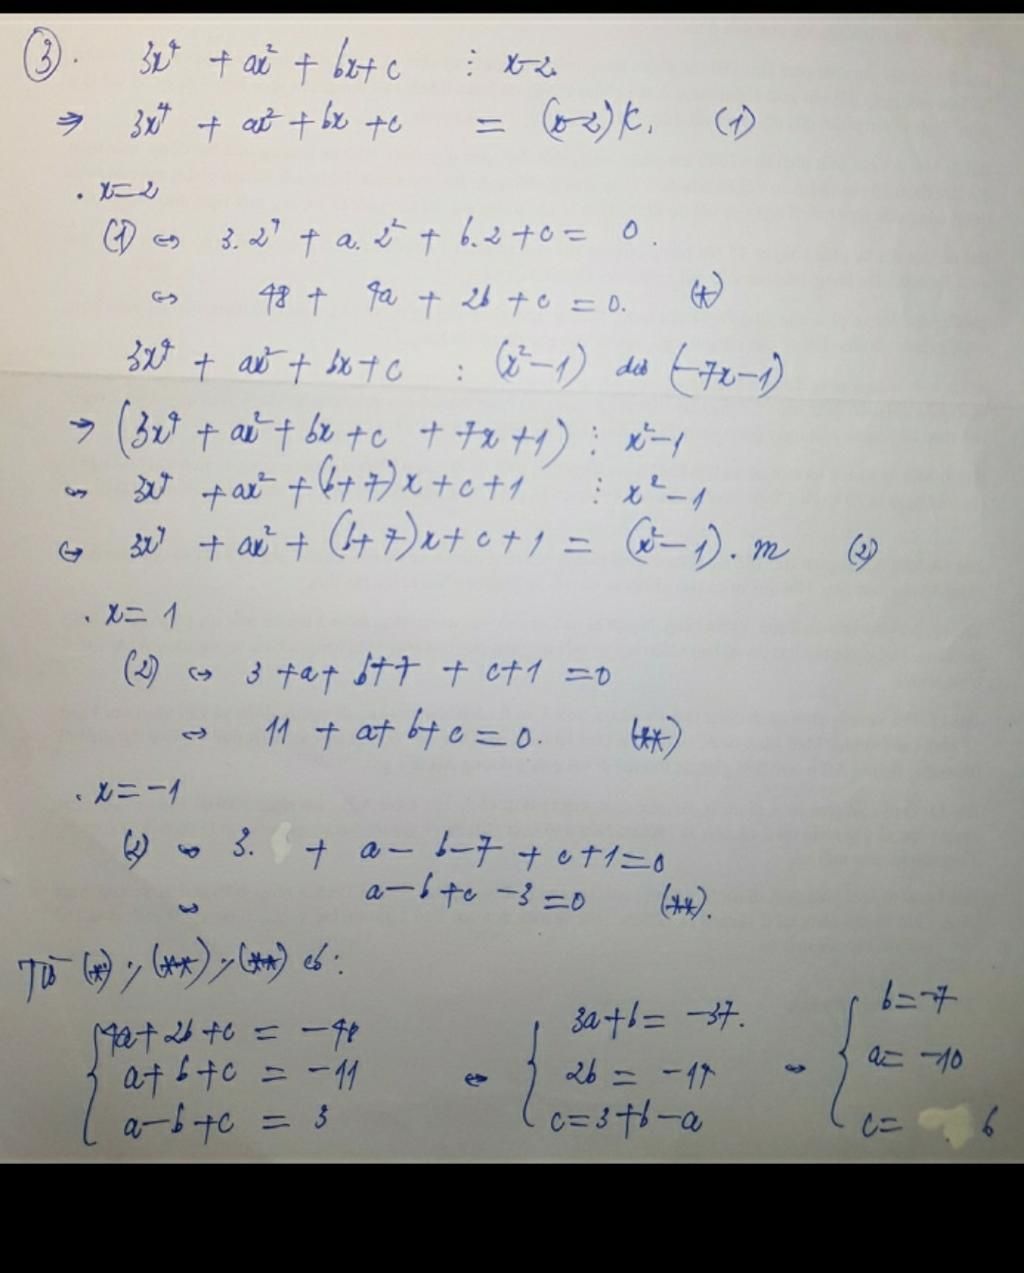 3. 3x⁴ + ax² + bx + c ⋮ x-2.
⇒ 3x⁴ + ax² + bx + c = (x-2)K. (1)
. x=2
(1) ⇔ 3.2⁴ + a.2² + b.2 + c = 0.
⇔ 48 + 4a + 2b + c = 0. (*)
3x⁴ + ax² + bx + c : (x²-1) dư (-7x-1)
⇒ (3x⁴ + ax² + bx + c + 7x + 1) ⋮ x²-1
⇔ 3x⁴ + ax² + (b+7)x + c + 1 ⋮ x²-1
⇔ 3x⁴ + ax² + (b+7)x + c + 1 = (x²-1).m (2)
. x = 1
(2) ⇔ 3 + a + b+7 + c+1 = 0
⇔ 11 + a + b + c = 0. (**)
. x = -1
(2) ⇔ 3. + a - b - 7 + c + 1 = 0
⇔ a - b + c - 3 = 0 (**).
Từ (*); (**); (**) có:
{ 4a + 2b + c = -48 ⇔ { 3a + b = -37. ⇔ { b = -7
a + b + c = -11 2b = -14 a = -10
a - b + c = 3 c = 3 + b - a c = 6